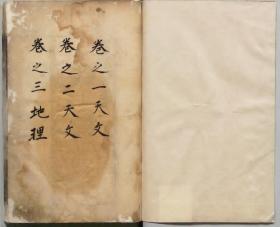 卷之一天文
卷之二天文
卷之三地理